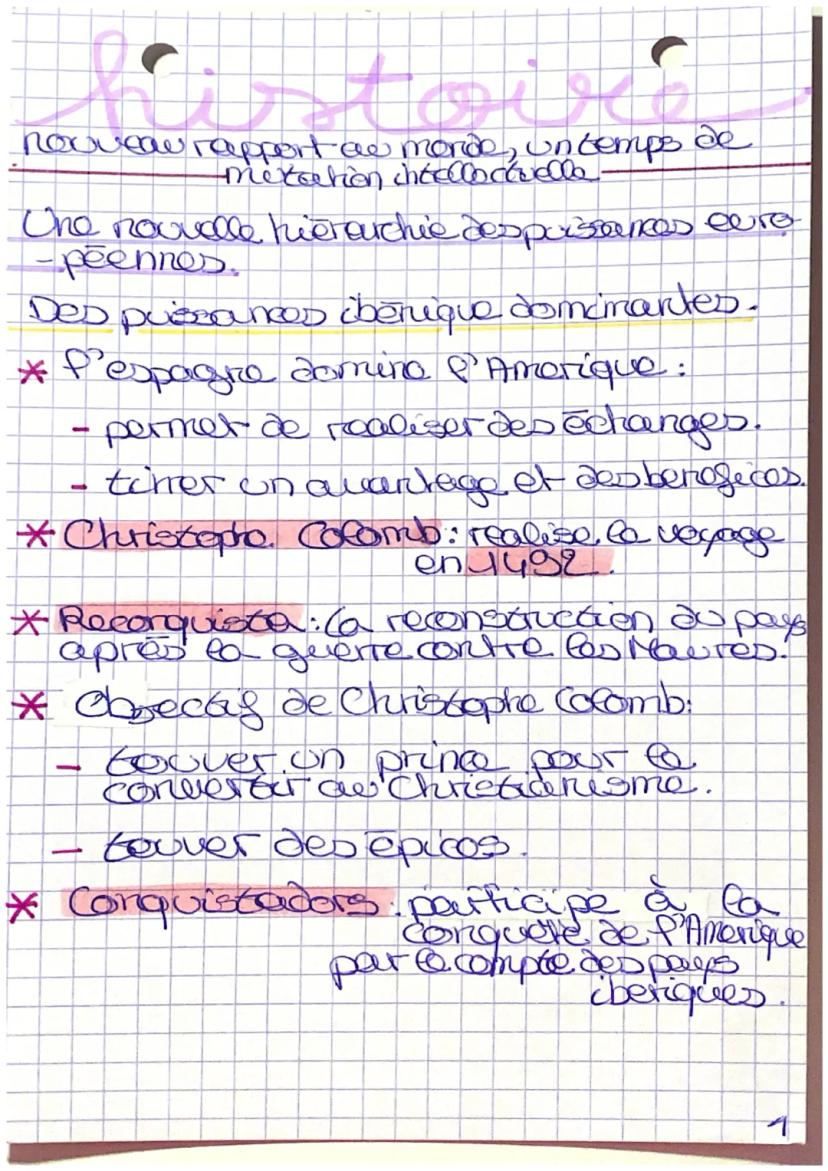 histoire
nouveau rapport au monde, un temps de
mutation intellectuelle
Une nouvelle hiérarchie des puissances euro-
-péennes.
Des puissances ibérique dominantes.
* l'espagne domine l'Amerique :
- permet de realiser des échanges.
- tirrer un avantage et des benefices.
* Christophe Colomb : realise le voyage
en 1492.
* Reconquista : la reconstruction du pays
après la guerre contre les Maures.
* Objectif de Christophe Colomb :
- touver un prince pour le
convertir au Christianisme.
- touver des épices.
* Conquistadors : participe à la
conquête de l'Amerique
par le compte des pays
iberiques.
1